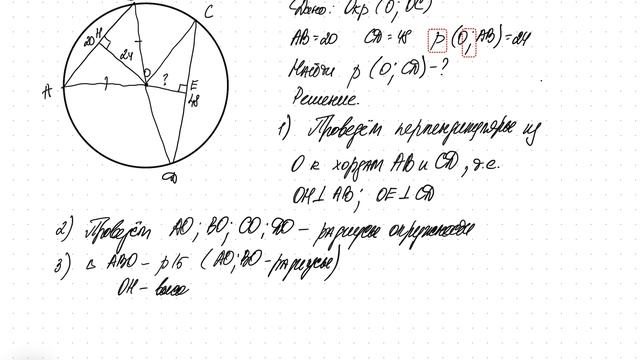 Дано: Окр (O; OC)
AB=20 CD=48 ρ(O; AB)=24
Найти ρ(O; CD)-?
Решение.
1) Проведём перпендикуляры из
O к хордам AB и CD, т.е.
OH⊥AB; OE⊥CD
2) Проведём AO; BO; CO; DO – радиусы окружности
3) △ ABO – р/б (AO; BO – радиусы)
OH –
C
20 H
24
O
?
E
48
A
D